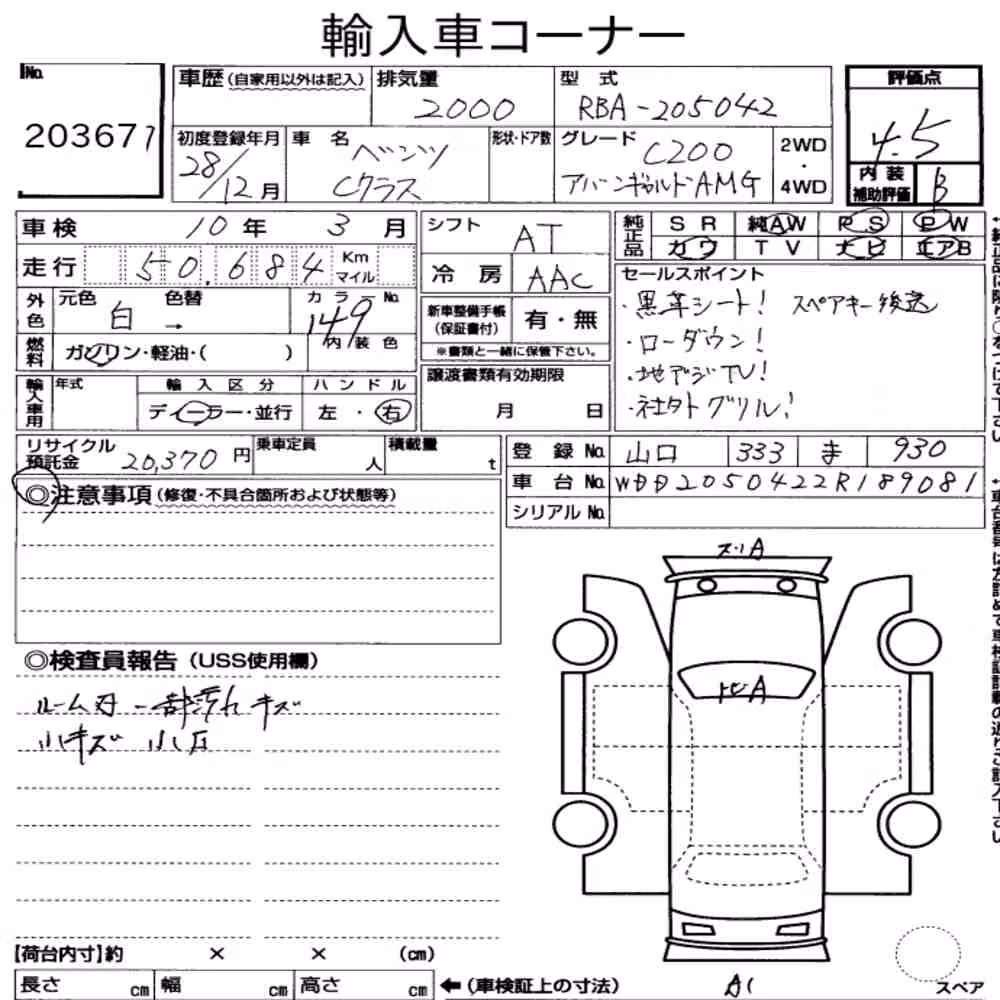 輸入車コーナー
No. 203671
車歴(自家用以外は記入) 排気量 2000 型式 RBA-205042
評価点 4.5
初度登録年月 28/12月 車名 ベンツ Cクラス 形状・ドア数 グレード C200 アバンギャルドAMG 2WD・4WD
内装補助評価 B
車検 10年 3月 シフト AT
純正品 SR 純AW PS PW
カワ TV ナビ エアB
走行 50,684 Km マイル 冷房 AAC
外色 元色 白 色替 → カラーNo. 149 内装色
新車整備手帳(保証書付) 有・無
※書類と一緒に保管下さい。
燃料 ガソリン・軽油・( )
セールスポイント
・黒革シート! スペアキー後送
・ローダウン!
・地デジTV!
・社外グリル!
輸入車用 年式 輸入区分 ディーラー・並行 ハンドル 左・右
譲渡書類有効期限 月 日
リサイクル預託金 20,370円 乗車定員 人 積載量 t
登録No. 山口 333 ま 930
車台No. WDD2050422R189081
シリアルNo.
◎注意事項(修復・不具合箇所および状態等)
◎検査員報告(USS使用欄)
ルーム内 一部汚れ キズ
小キズ 小凹
スリA
トビA
A1
【荷台内寸】約 × × (cm)
長さ cm 幅 cm 高さ cm ←(車検証上の寸法)
スペア